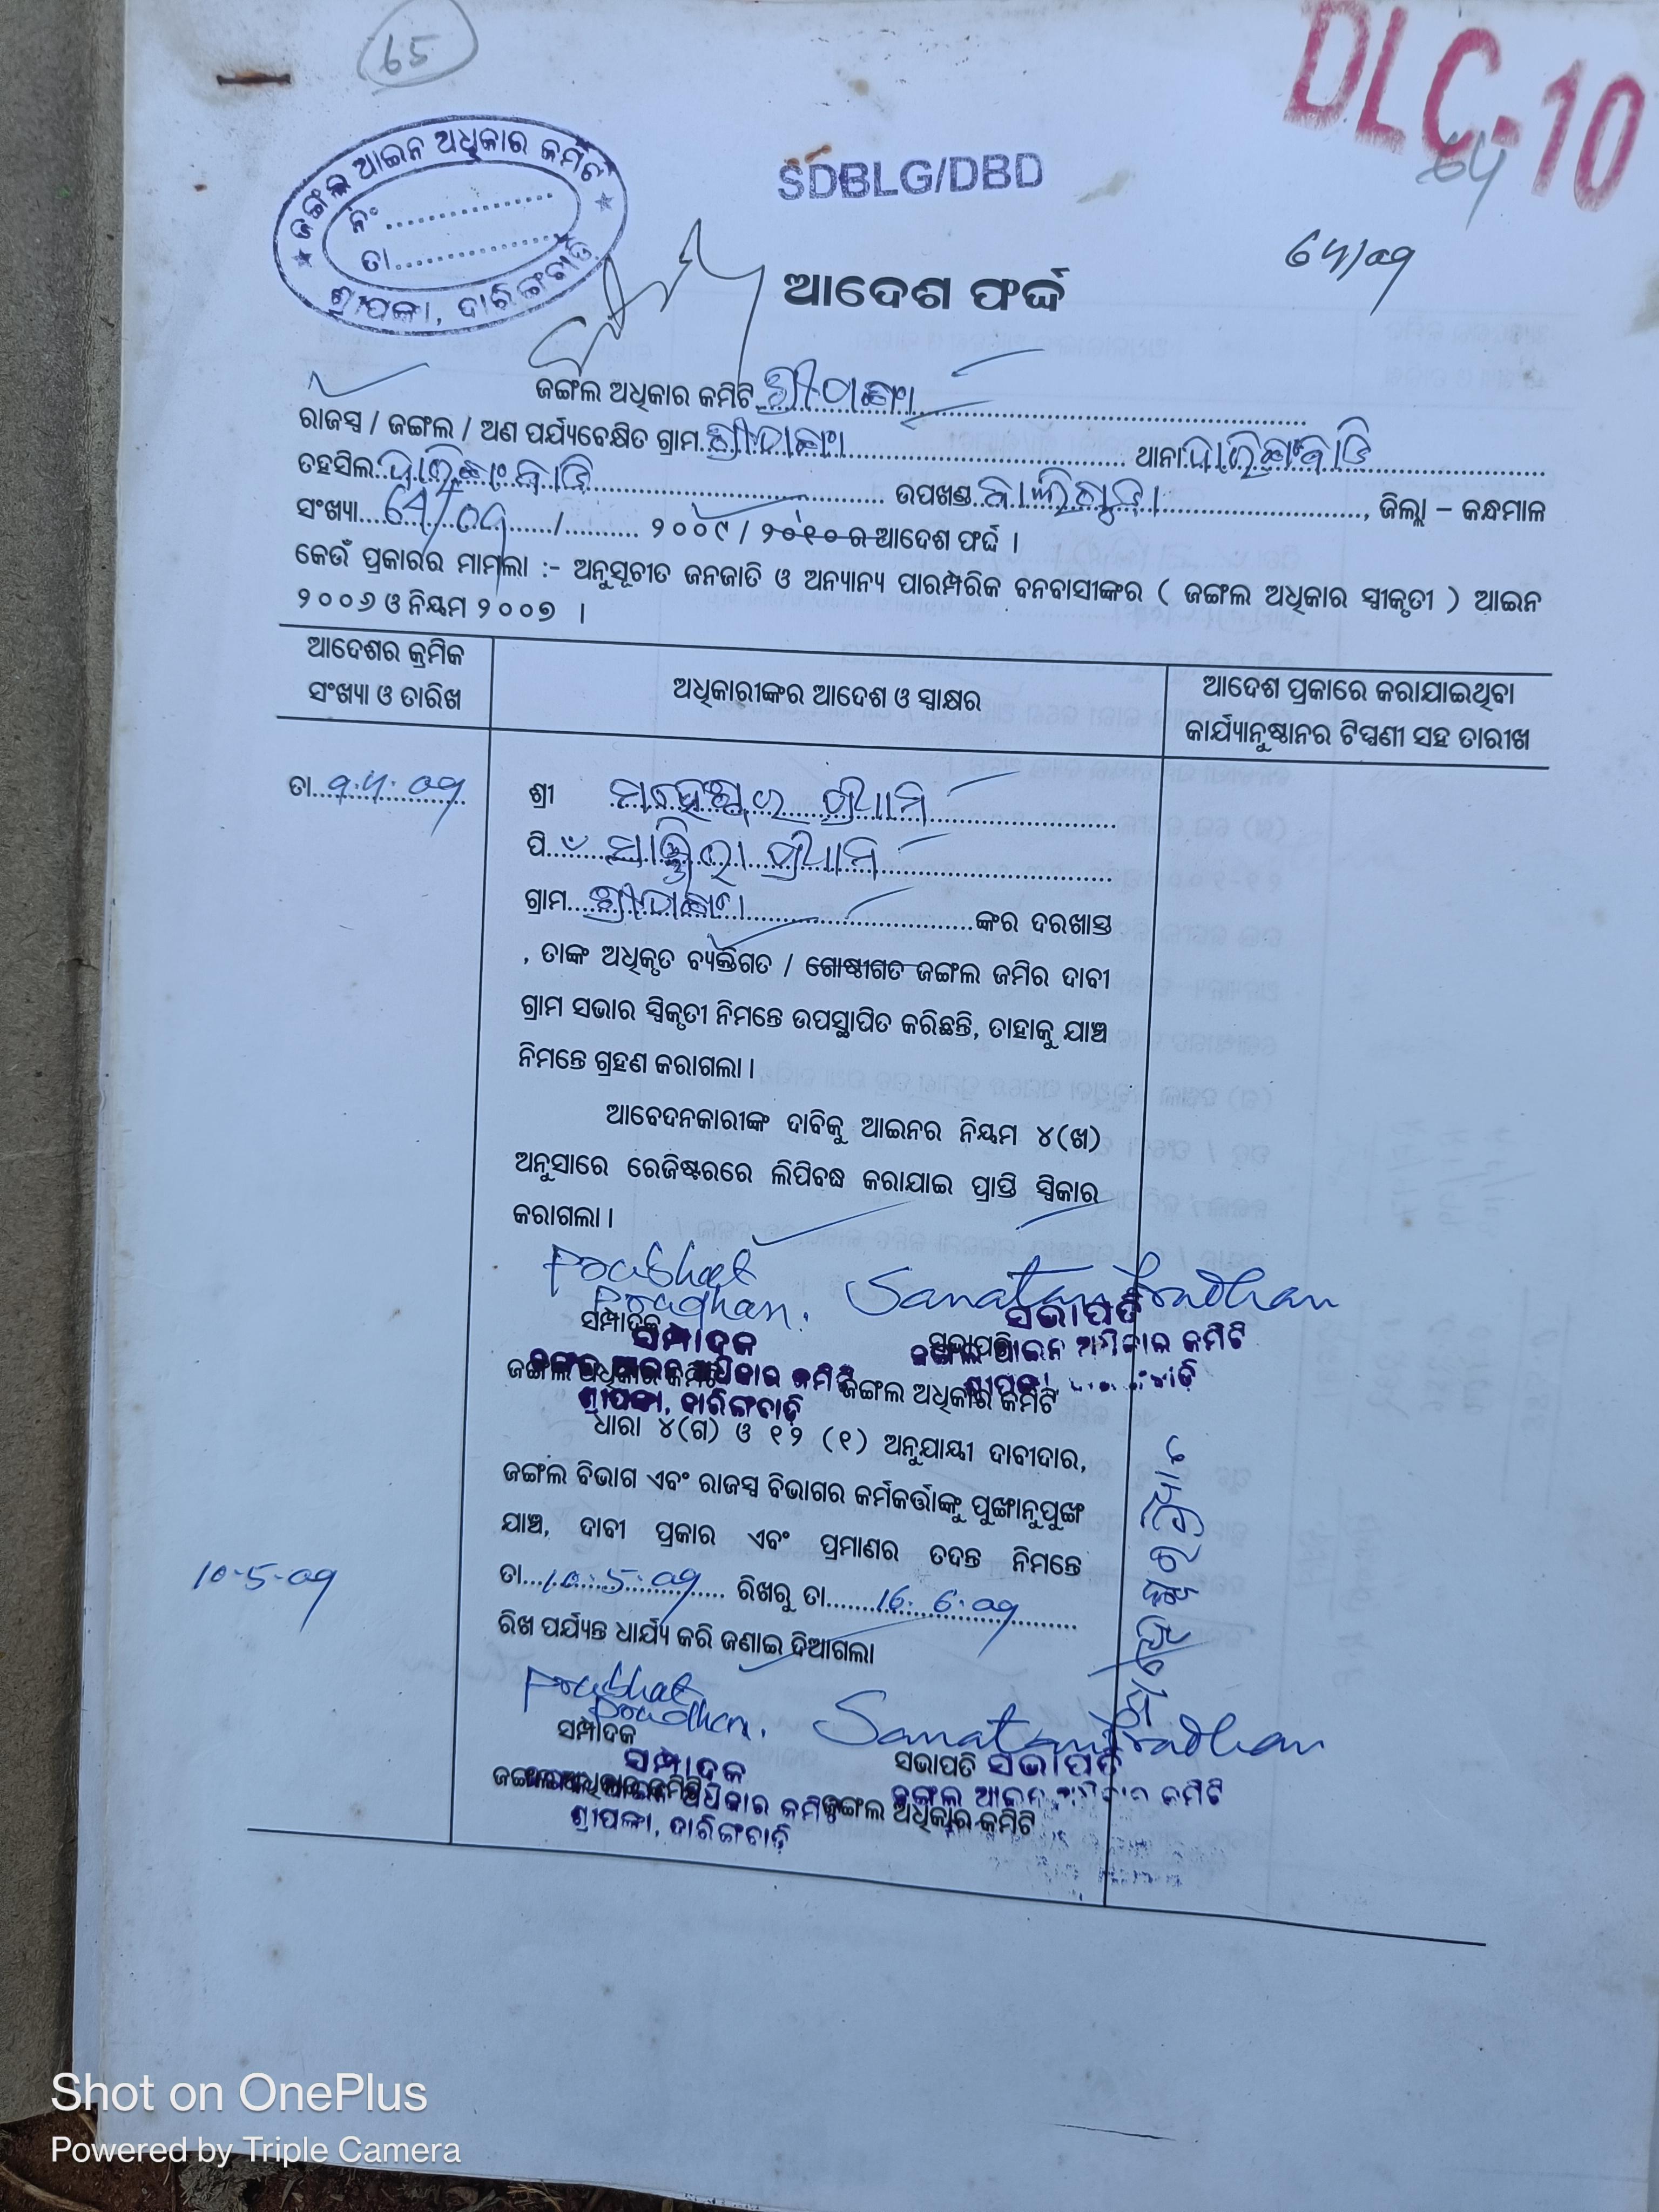 65
DLC-10
64
ଜଙ୍ଗଲ ଆଇନ ଅଧିକାର କମିଟି
ନଂ..................
ତା..................
ଶ୍ରୀପଙ୍କା, ଦାରିଙ୍ଗବାଡ଼ି
SDBLG/DBD
64/09
ଆଦେଶ ଫର୍ଦ୍ଦ
ଜଙ୍ଗଲ ଅଧିକାର କମିଟି ଶ୍ରୀପଙ୍କା
ରାଜସ୍ୱ / ଜଙ୍ଗଲ / ଅଣ ପର୍ଯ୍ୟବେକ୍ଷିତ ଗ୍ରାମ ଶ୍ରୀପଙ୍କା ଥାନା ଦାରିଙ୍ଗବାଡି
ତହସିଲ ଦାରିଙ୍ଗବାଡି ଉପଖଣ୍ଡ ବାଲିଗୁଡା, ଜିଲ୍ଲା – କନ୍ଧମାଳ
ସଂଖ୍ୟା 64/09 /.......... ୨୦୦୯ / ୨୦୧୦ ର ଆଦେଶ ଫର୍ଦ୍ଦ ।
କେଉଁ ପ୍ରକାରର ମାମଲା :- ଅନୁସୂଚୀତ ଜନଜାତି ଓ ଅନ୍ୟାନ୍ୟ ପାରମ୍ପରିକ ବନବାସୀଙ୍କର ( ଜଙ୍ଗଲ ଅଧିକାର ସ୍ୱୀକୃତୀ ) ଆଇନ
୨୦୦୬ ଓ ନିୟମ ୨୦୦୭ ।
ଆଦେଶର କ୍ରମିକ
ସଂଖ୍ୟା ଓ ତାରିଖ
ଅଧିକାରୀଙ୍କର ଆଦେଶ ଓ ସ୍ୱାକ୍ଷର
ଆଦେଶ ପ୍ରକାରେ କରାଯାଇଥିବା
କାର୍ଯ୍ୟାନୁଷ୍ଠାନର ଟିପ୍ପଣୀ ସହ ତାରୀଖ
ତା 9.4.09
ଶ୍ରୀ ମହେଶ୍ୱର
ପି
ଗ୍ରାମ ଶ୍ରୀପଙ୍କା ଙ୍କର ଦରଖାସ୍ତ
, ତାଙ୍କ ଅଧିକୃତ ବ୍ୟକ୍ତିଗତ / ଗୋଷ୍ଠୀଗତ ଜଙ୍ଗଲ ଜମିର ଦାବୀ
ଗ୍ରାମ ସଭାର ସ୍ୱିକୃତୀ ନିମନ୍ତେ ଉପସ୍ଥାପିତ କରିଛନ୍ତି, ତାହାକୁ ଯାଞ୍ଚ
ନିମନ୍ତେ ଗ୍ରହଣ କରାଗଲା ।
ଆବେଦନକାରୀଙ୍କ ଦାବିକୁ ଆଇନର ନିୟମ ୪(ଖ)
ଅନୁସାରେ ରେଜିଷ୍ଟରରେ ଲିପିବଦ୍ଧ କରାଯାଇ ପ୍ରାପ୍ତି ସ୍ୱିକାର
କରାଗଲା ।
Prabhat Pradhan. Sanatan Pradhan
ସମ୍ପାଦକ ସଭାପତି
ସମ୍ପାଦକ ସଭାପତି
ଜଙ୍ଗଲ ଆଇନ ଅଧିକାର କମିଟି ଜଙ୍ଗଲ ଆଇନ ଅଧିକାର କମିଟି
ଜଙ୍ଗଲ ଅଧିକାର କମିଟି ଜଙ୍ଗଲ ଅଧିକାର କମିଟି
ଶ୍ରୀପଙ୍କା, ଦାରିଙ୍ଗବାଡ଼ି
ଧାରା ୪(ଗ) ଓ ୧୨ (୧) ଅନୁଯାୟୀ ଦାବୀଦାର,
ଜଙ୍ଗଲ ବିଭାଗ ଏବଂ ରାଜସ୍ୱ ବିଭାଗର କର୍ମକର୍ତ୍ତାଙ୍କୁ ପୁଙ୍ଖାନୁପୁଙ୍ଖ
ଯାଞ୍ଚ, ଦାବୀ ପ୍ରକାର ଏବଂ ପ୍ରମାଣର ତଦନ୍ତ ନିମନ୍ତେ
10-5-09
ତା 10.5.09 ରିଖରୁ ତା 16.6.09
ରିଖ ପର୍ଯ୍ୟନ୍ତ ଧାର୍ଯ୍ୟ କରି ଜଣାଇ ଦିଆଗଲା
Prabhat Pradhan. Sanatan Pradhan
ସମ୍ପାଦକ ସଭାପତି
ସମ୍ପାଦକ ସଭାପତି
ଜଙ୍ଗଲ ଅଧିକାର କମିଟି ଜଙ୍ଗଲ ଆଇନ ଅଧିକାର କମିଟି
ଜଙ୍ଗଲ ଆଇନ ଅଧିକାର କମିଟି ଜଙ୍ଗଲ ଅଧିକାର କମିଟି
ଶ୍ରୀପଙ୍କା, ଦାରିଙ୍ଗବାଡ଼ି
Shot on OnePlus
Powered by Triple Camera